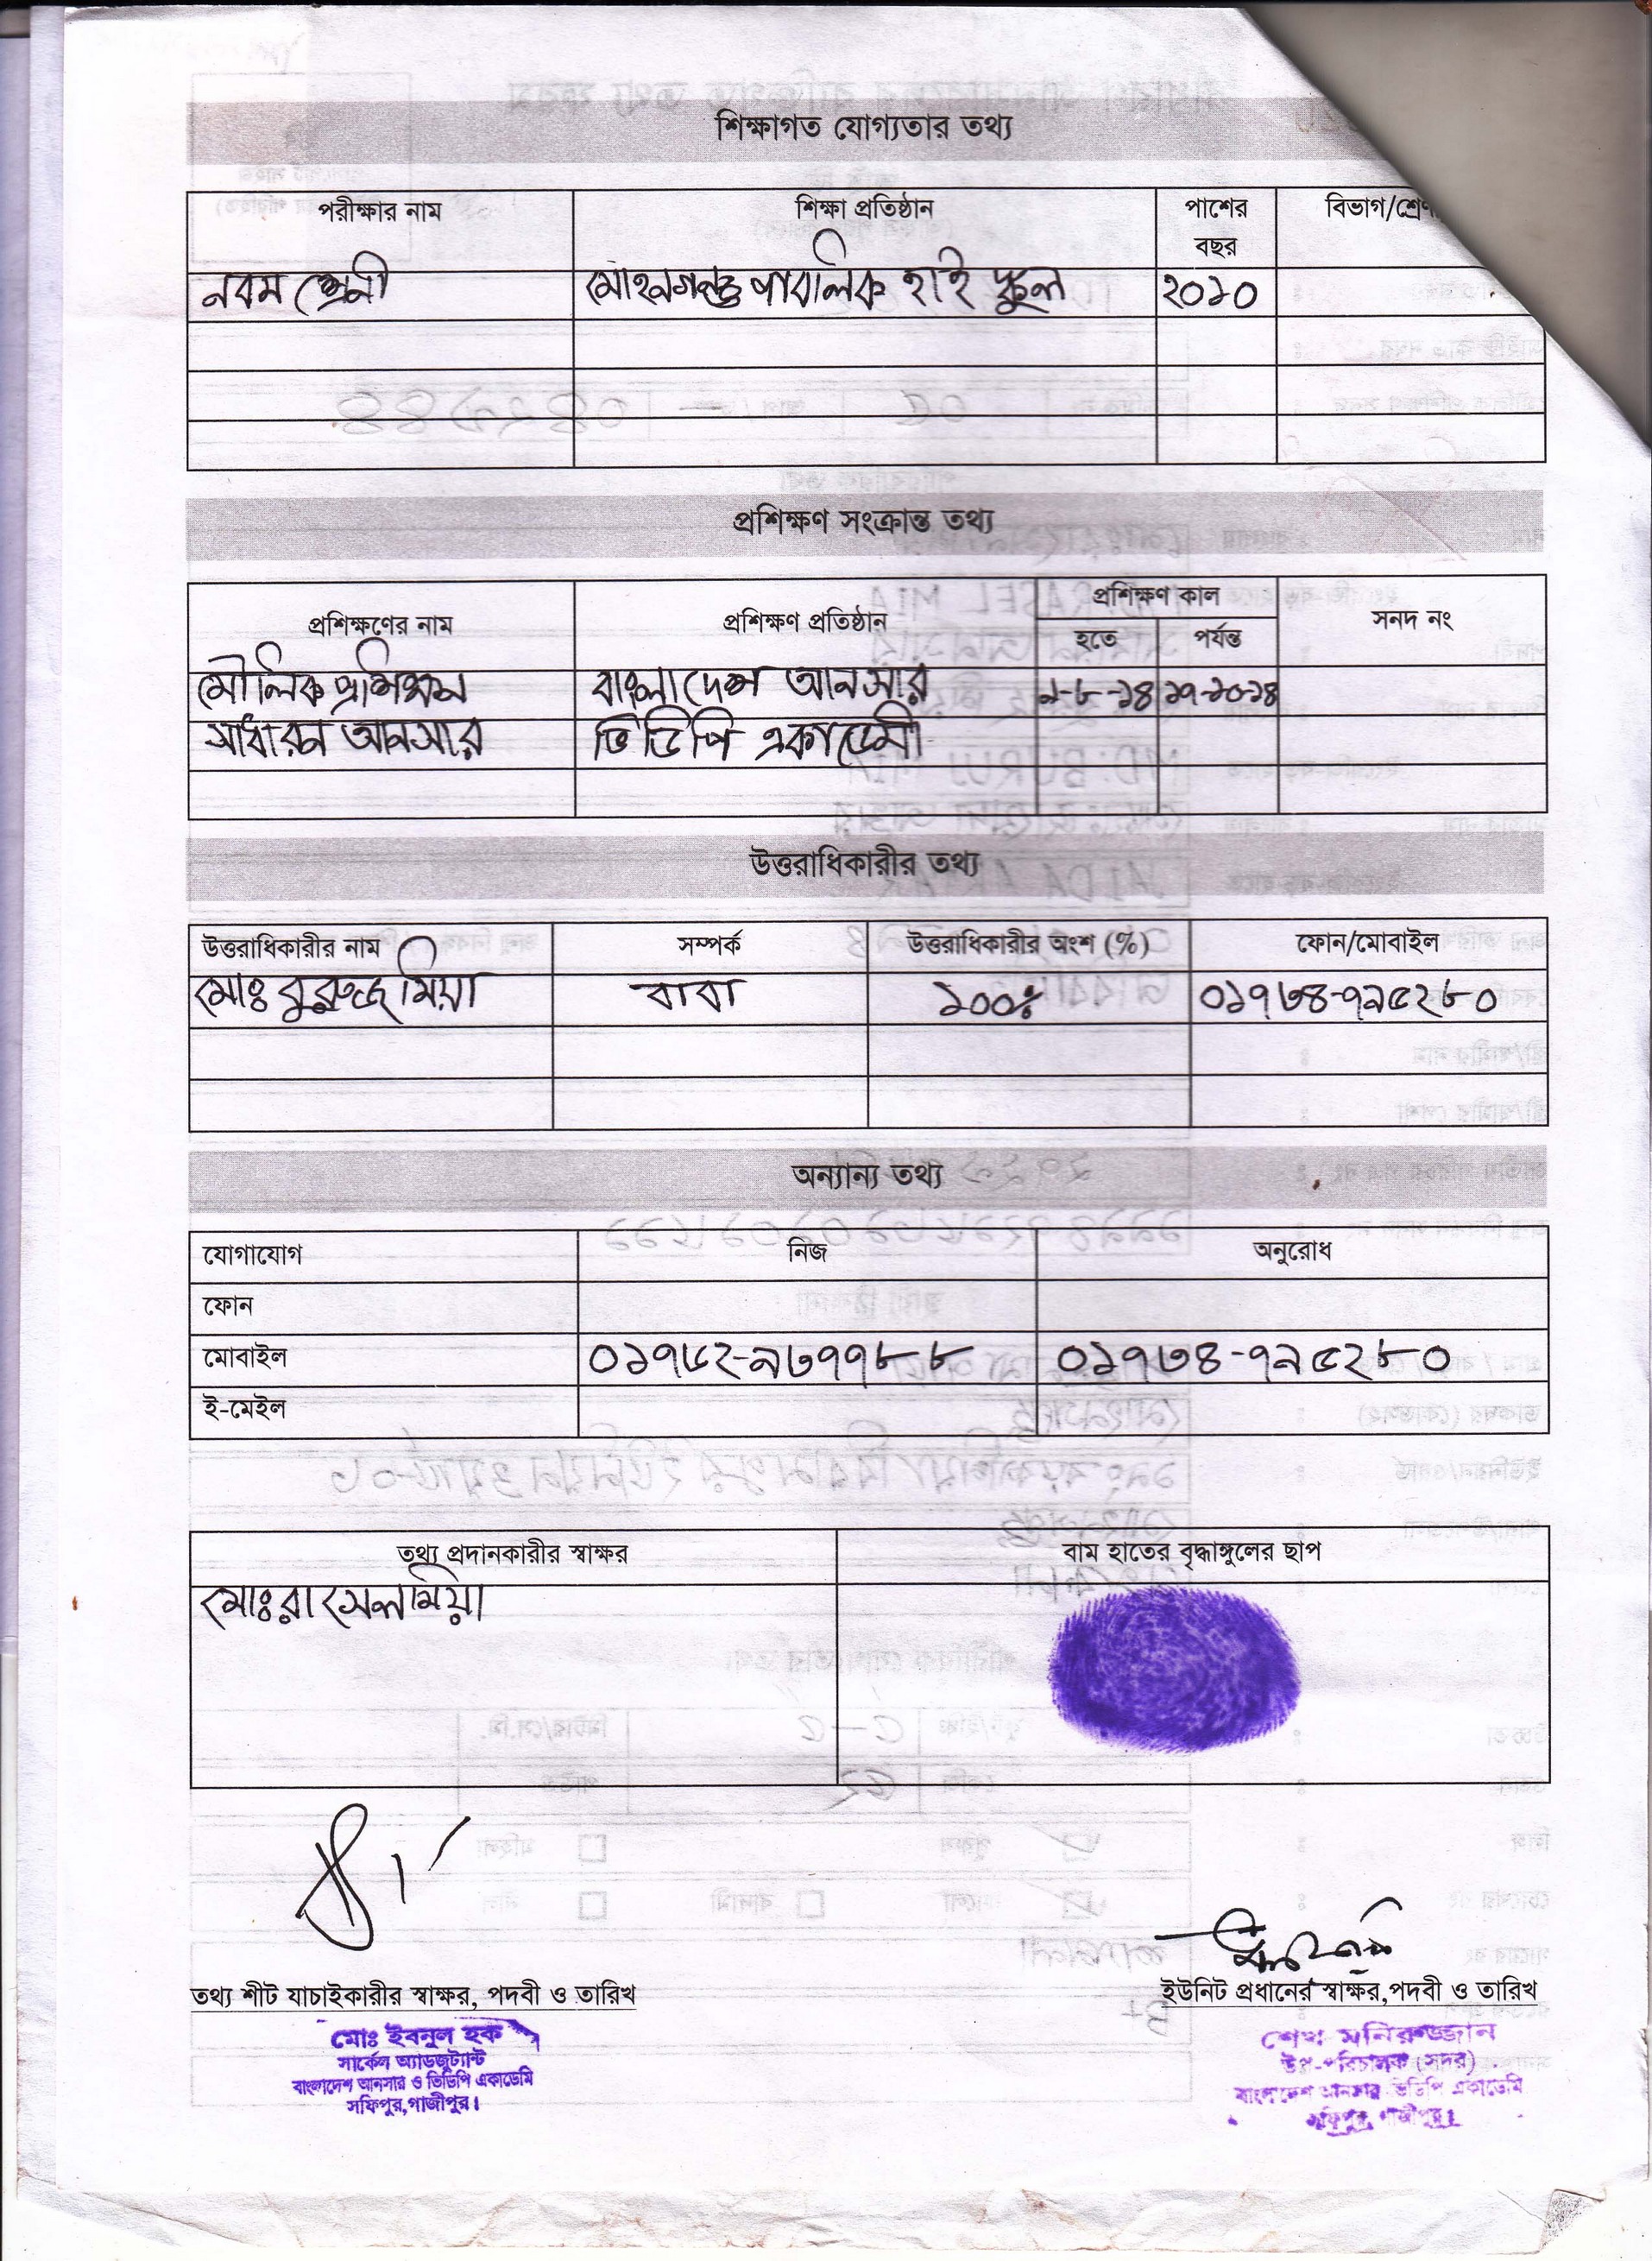 শিক্ষাগত যোগ্যতার তথ্য
পরীক্ষার নাম শিক্ষা প্রতিষ্ঠান পাশের বছর বিভাগ/শ্রে
নবম শ্রেনী মোহনগঞ্জ পাবলিক হাই স্কুল ২০১০
প্রশিক্ষণ সংক্রান্ত তথ্য
প্রশিক্ষণের নাম প্রশিক্ষণ প্রতিষ্ঠান প্রশিক্ষণ কাল সনদ নং
হতে পর্যন্ত
মৌলিক প্রশিক্ষন বাংলাদেশ আনসার ৯-৮-১৪ ১৭-১০-১৪
সাধারন আনসার ভিডিপি একাডেমী
উত্তরাধিকারীর তথ্য
উত্তরাধিকারীর নাম সম্পর্ক উত্তরাধিকারীর অংশ (%) ফোন/মোবাইল
মোঃ বুরুজ মিয়া বাবা ১০০% ০১৭৩৪-৭৯৫২৮০
অন্যান্য তথ্য
যোগাযোগ নিজ অনুরোধ
ফোন
মোবাইল ০১৭৬২-৯৩৭৭৮৮ ০১৭৩৪-৭৯৫২৮০
ই-মেইল
তথ্য প্রদানকারীর স্বাক্ষর বাম হাতের বৃদ্ধাঙ্গুলের ছাপ
মোঃ রাসেল মিয়া
তথ্য শীট যাচাইকারীর স্বাক্ষর, পদবী ও তারিখ
মোঃ ইবনুল হক
সার্কেল অ্যাডজুট্যান্ট
বাংলাদেশ আনসার ও ভিডিপি একাডেমি
সফিপুর,গাজীপুর।
ইউনিট প্রধানের স্বাক্ষর,পদবী ও তারিখ
শেখ মনিরুজ্জান
উপ-পরিচালক (সদর)
বাংলাদেশ আনসার ভিডিপি একাডেমি
সফিপুর, গাজীপুর।